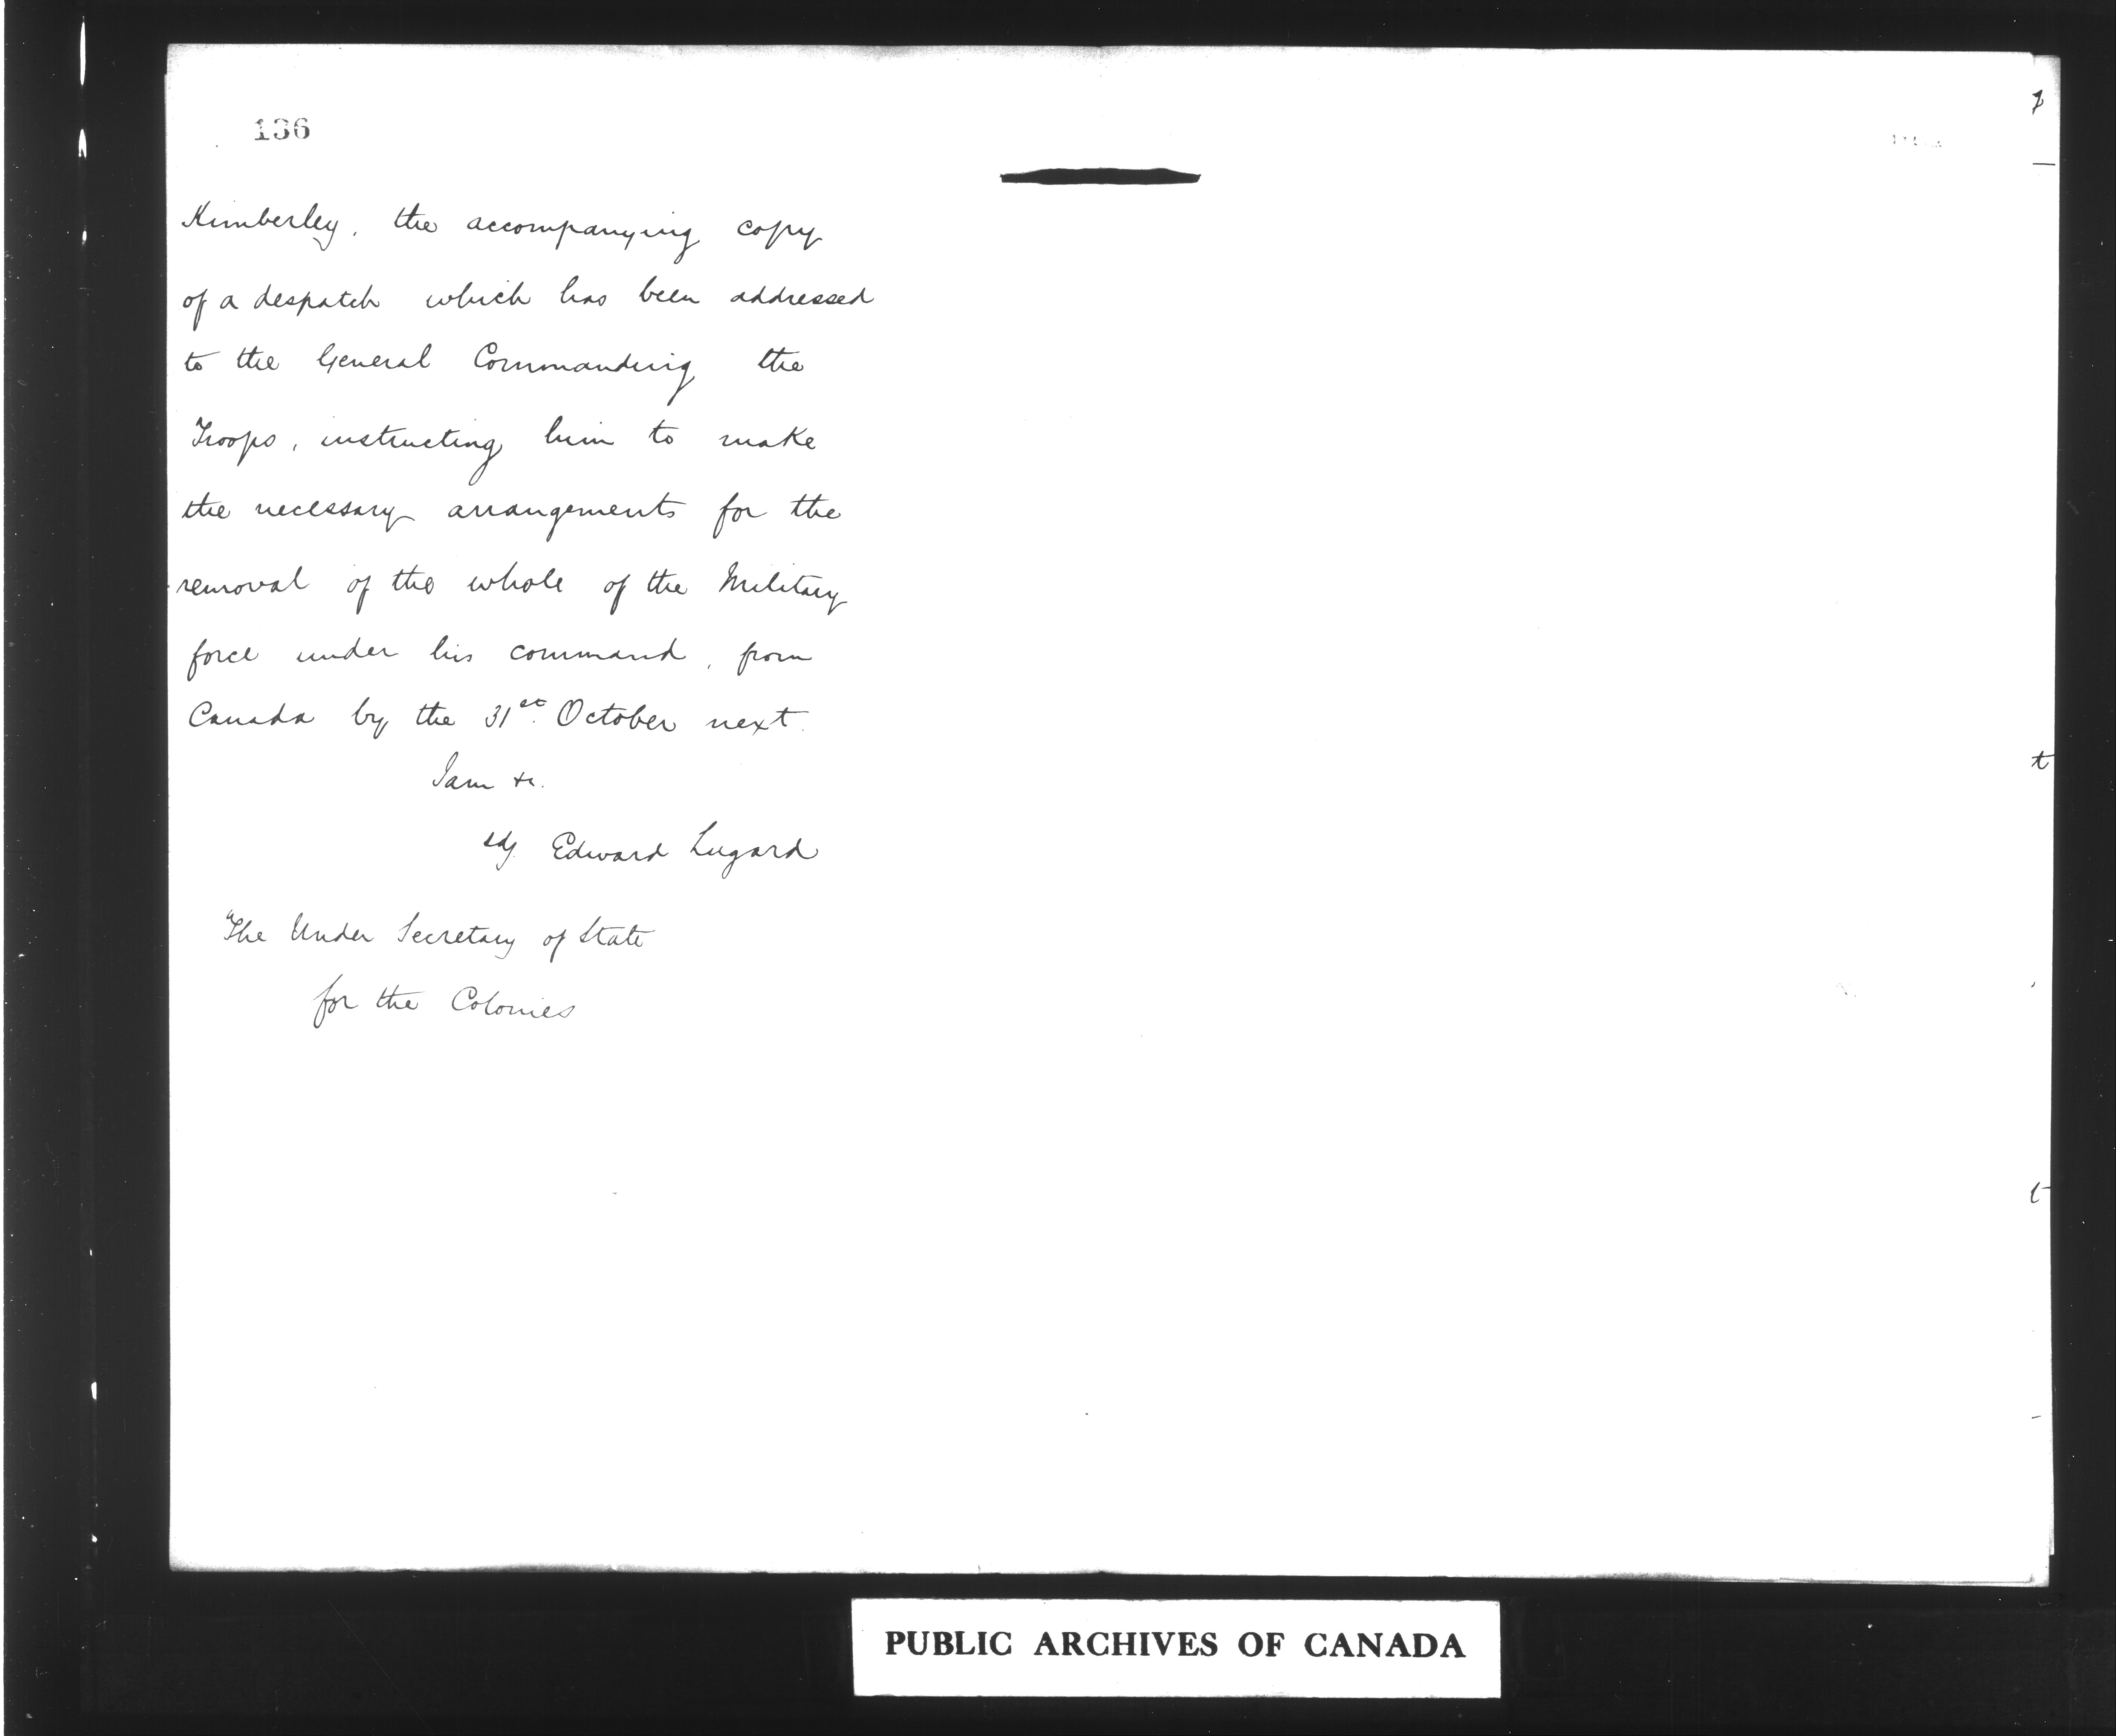 136
Kimberley, the accompanying copy
of a despatch which has been addressed
to the General Commanding the
Troops, instructing him to make
the necessary arrangements for the
removal of the whole of the Military
force under his command, from
Canada by the 31st October next.
I am &c.
sd/ Edward Lugard
The Under Secretary of State
for the Colonies
PUBLIC ARCHIVES OF CANADA